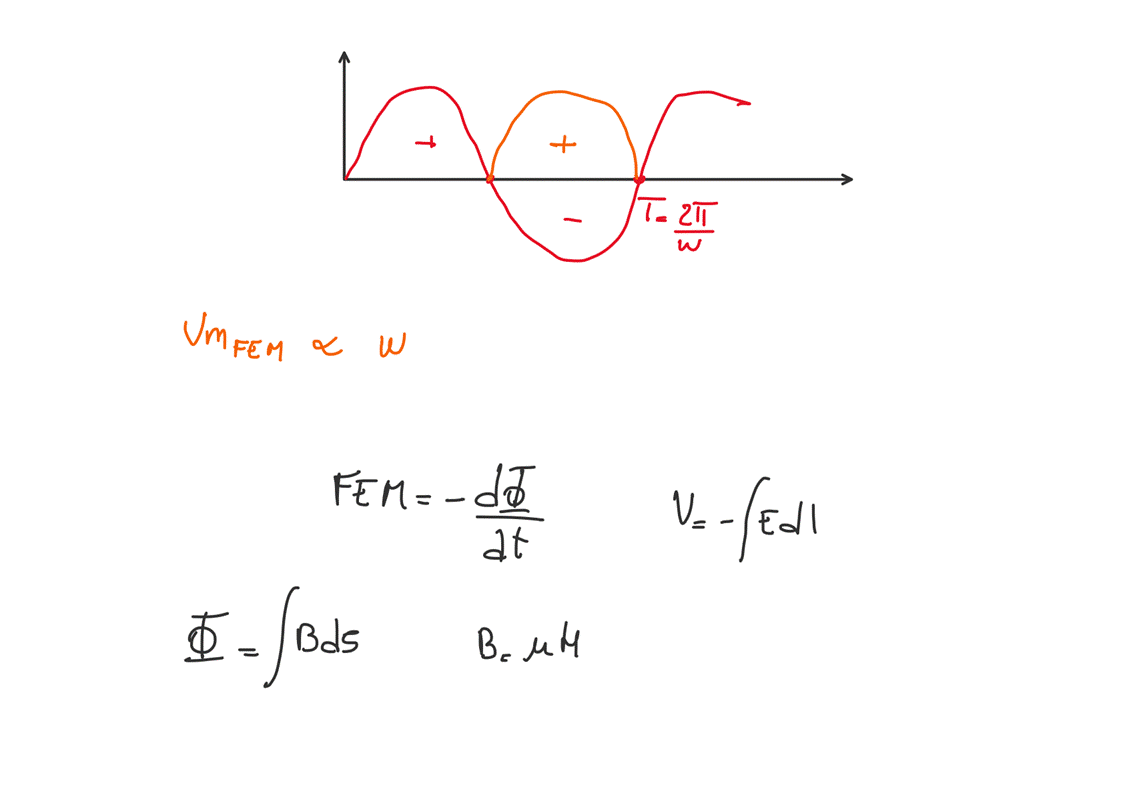 + +
-
T = 2π/w
Vm_FEM ∝ w
FEM = - dΦ/dt V = - ∫E dl
Φ = ∫B ds B = μH